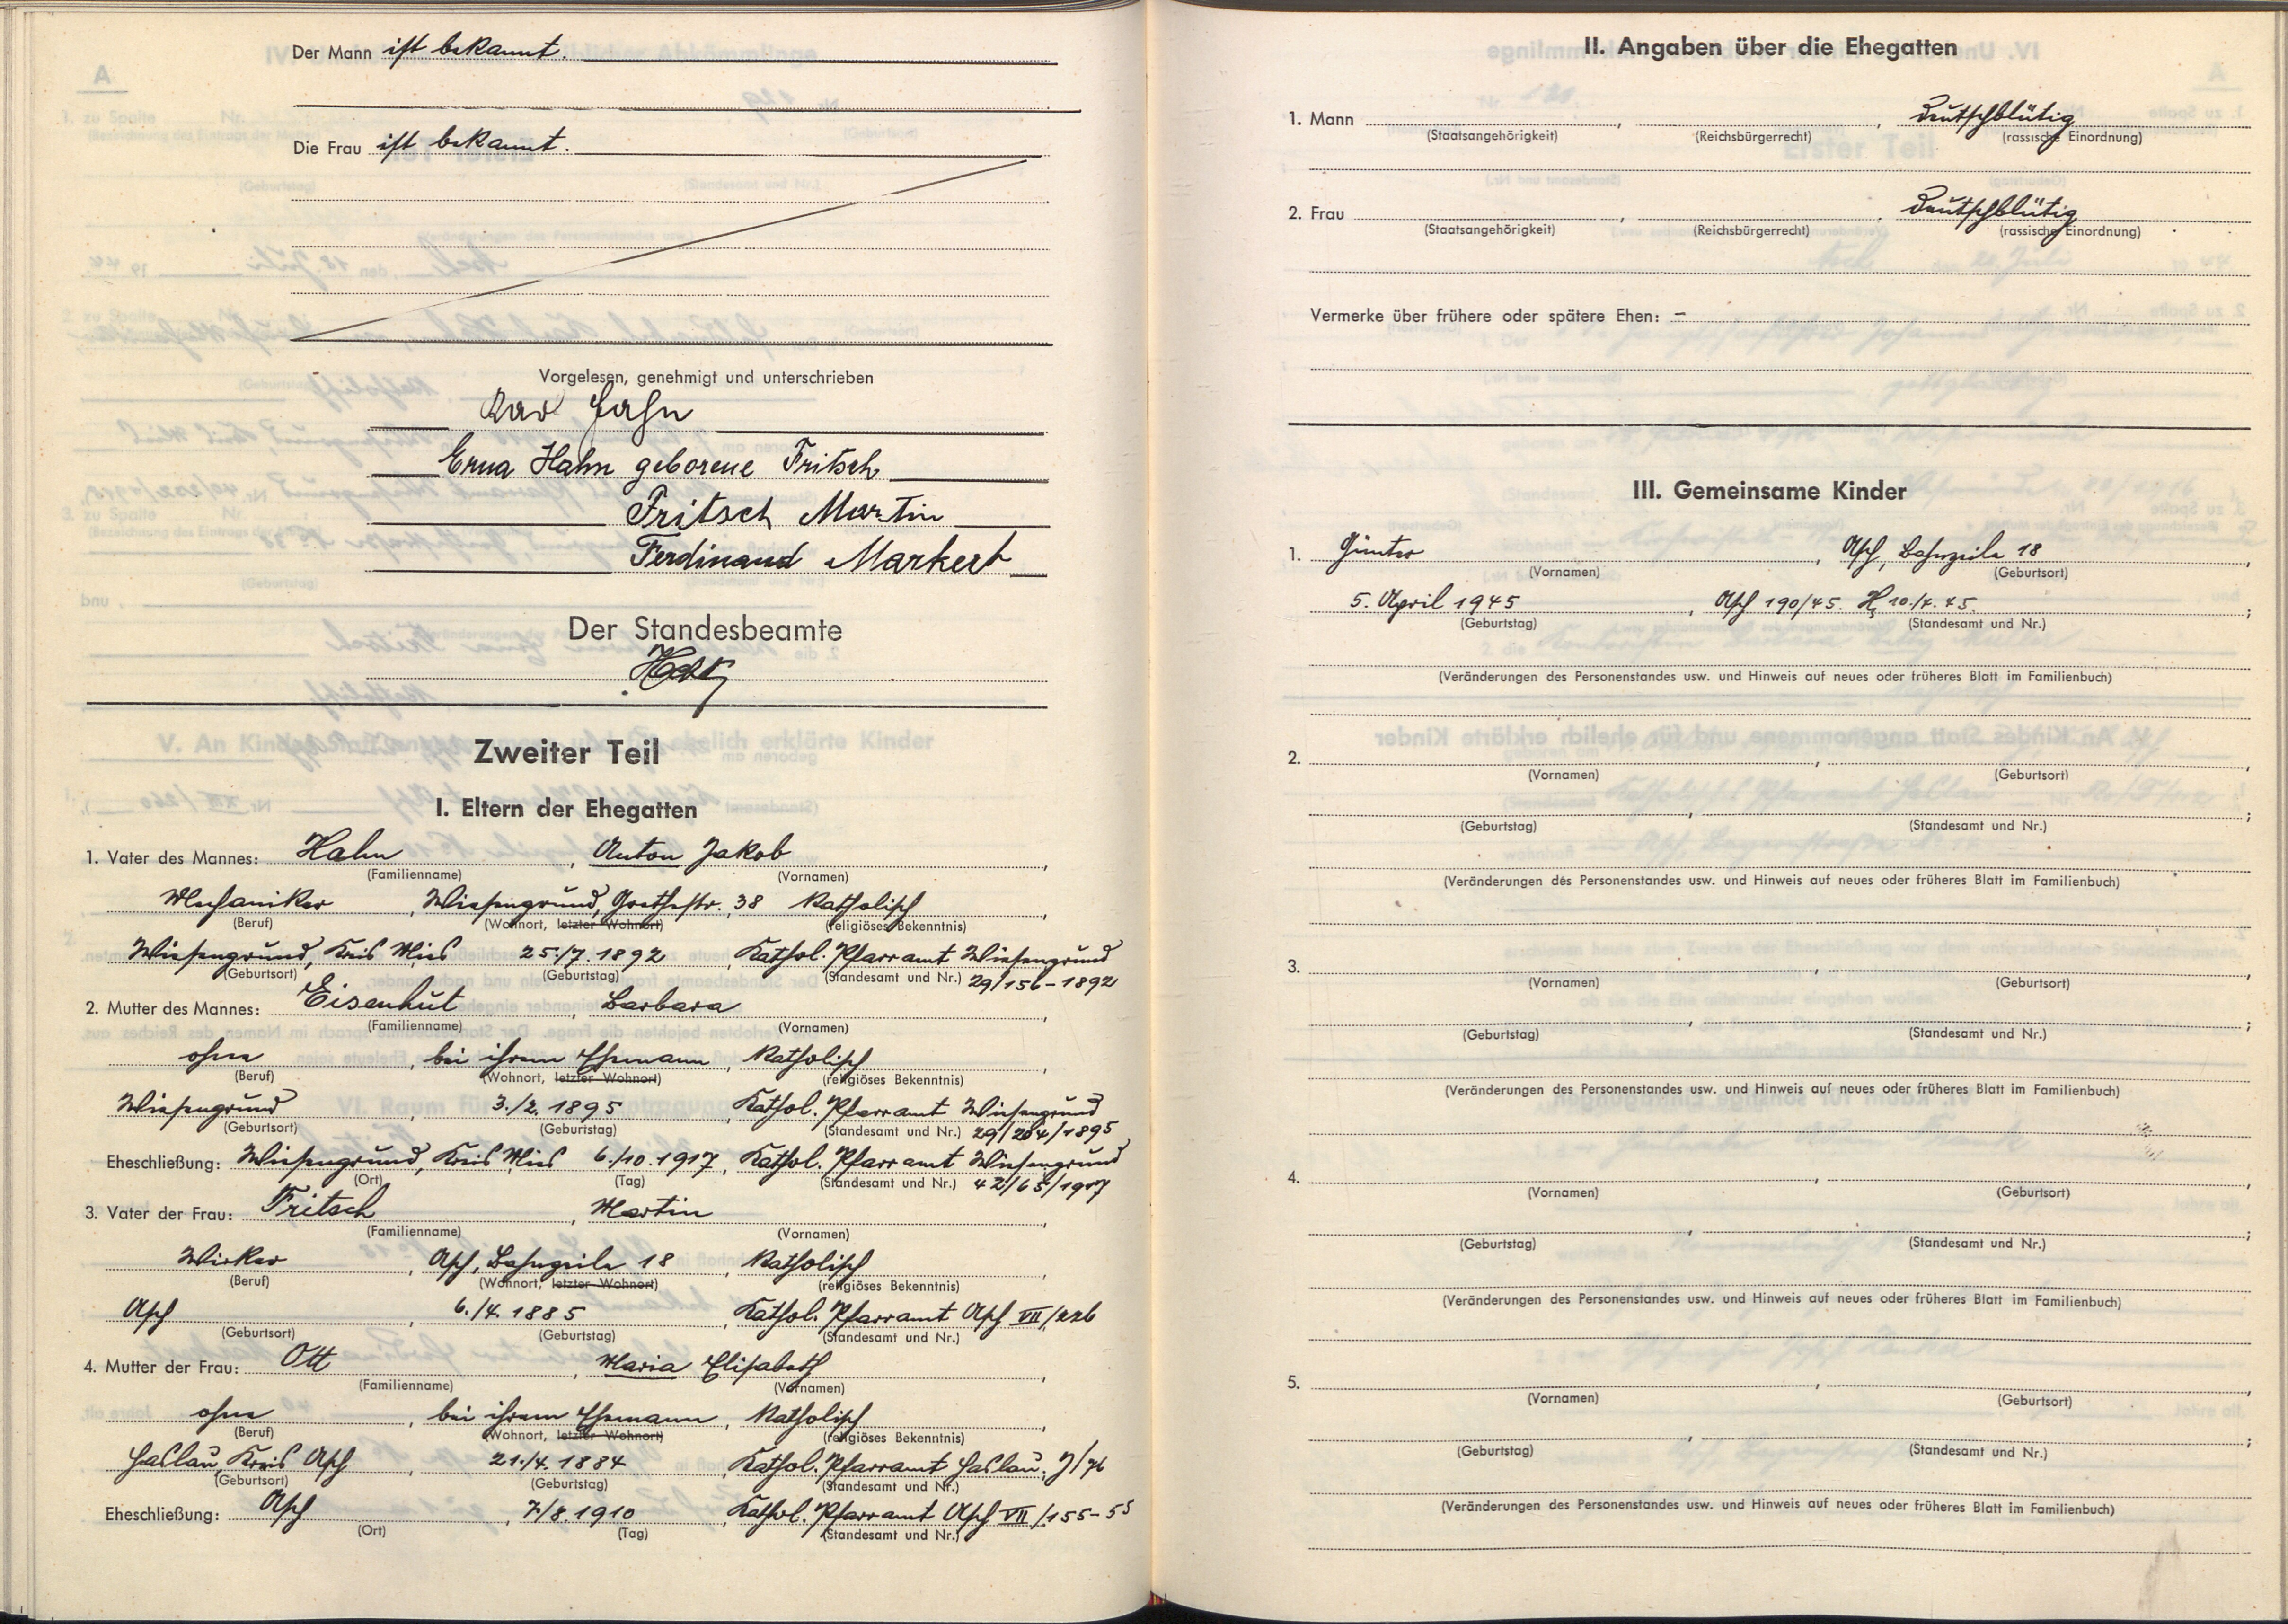 Der Mann ist bekannt.
Die Frau ist bekannt.
Vorgelesen, genehmigt und unterschrieben
Karl Hahn
Erna Hahn geborene Fritsch
Fritsch Martin
Ferdinand Markert
Der Standesbeamte
Zweiter Teil
I. Eltern der Ehegatten
1. Vater des Mannes: Hahn, Anton Jakob
(Familienname) (Vornamen)
Mechaniker, Wiesengrund, Goethestr. 38 Katholisch,
(Beruf) (Wohnort, letzter Wohnort) (religiöses Bekenntnis)
Wiesengrund, Kreis Mies 25./7. 1892, Kathol. Pfarramt Wiesengrund
(Geburtsort) (Geburtstag) (Standesamt und Nr.) 29/156-1892
2. Mutter des Mannes: Eisenhut, Barbara
(Familienname) (Vornamen)
ohne, bei ihrem Ehemann, Katholisch,
(Beruf) (Wohnort, letzter Wohnort) (religiöses Bekenntnis)
Wiesengrund, 3./2. 1895, Kathol. Pfarramt Wiesengrund
(Geburtsort) (Geburtstag) (Standesamt und Nr.) 29/264/1895
Eheschließung: Wiesengrund, Kreis Mies 6./10. 1917, Kathol. Pfarramt Wiesengrund
(Ort) (Tag) (Standesamt und Nr.) 42/65/1917
3. Vater der Frau: Fritsch, Martin,
(Familienname) (Vornamen)
Wirker, Asch, Bahnzeile 18, Katholisch,
(Beruf) (Wohnort, letzter Wohnort) (religiöses Bekenntnis)
Asch, 6./4. 1885, Kathol. Pfarramt Asch VII/226
(Geburtsort) (Geburtstag) (Standesamt und Nr.)
4. Mutter der Frau: Ott, Maria Elisabeth,
(Familienname) (Vornamen)
ohne, bei ihrem Ehemann, Katholisch,
(Beruf) (Wohnort, letzter Wohnort) (religiöses Bekenntnis)
Haslau, Kreis Asch, 21./4. 1884, Kathol. Pfarramt Haslau, J/76
(Geburtsort) (Geburtstag) (Standesamt und Nr.)
Eheschließung: Asch, 7/8. 1910, Kathol. Pfarramt Asch VII/155-55
(Ort) (Tag) (Standesamt und Nr.)
II. Angaben über die Ehegatten
1. Mann , , deutschblütig
(Staatsangehörigkeit) (Reichsbürgerrecht) (rassische Einordnung)
2. Frau , , deutschblütig
(Staatsangehörigkeit) (Reichsbürgerrecht) (rassische Einordnung)
Vermerke über frühere oder spätere Ehen: –
III. Gemeinsame Kinder
1. Günter, Asch, Bahnzeile 18,
(Vornamen) (Geburtsort)
5. April 1945, Asch 190/45. 10./4. 45.;
(Geburtstag) (Standesamt und Nr.)
(Veränderungen des Personenstandes usw. und Hinweis auf neues oder früheres Blatt im Familienbuch)
2. , ,
(Vornamen) (Geburtsort)
, ;
(Geburtstag) (Standesamt und Nr.)
(Veränderungen des Personenstandes usw. und Hinweis auf neues oder früheres Blatt im Familienbuch)
3. , ,
(Vornamen) (Geburtsort)
, ;
(Geburtstag) (Standesamt und Nr.)
(Veränderungen des Personenstandes usw. und Hinweis auf neues oder früheres Blatt im Familienbuch)
4. , ,
(Vornamen) (Geburtsort)
, ;
(Geburtstag) (Standesamt und Nr.)
(Veränderungen des Personenstandes usw. und Hinweis auf neues oder früheres Blatt im Familienbuch)
5. , ,
(Vornamen) (Geburtsort)
, ;
(Geburtstag) (Standesamt und Nr.)
(Veränderungen des Personenstandes usw. und Hinweis auf neues oder früheres Blatt im Familienbuch)